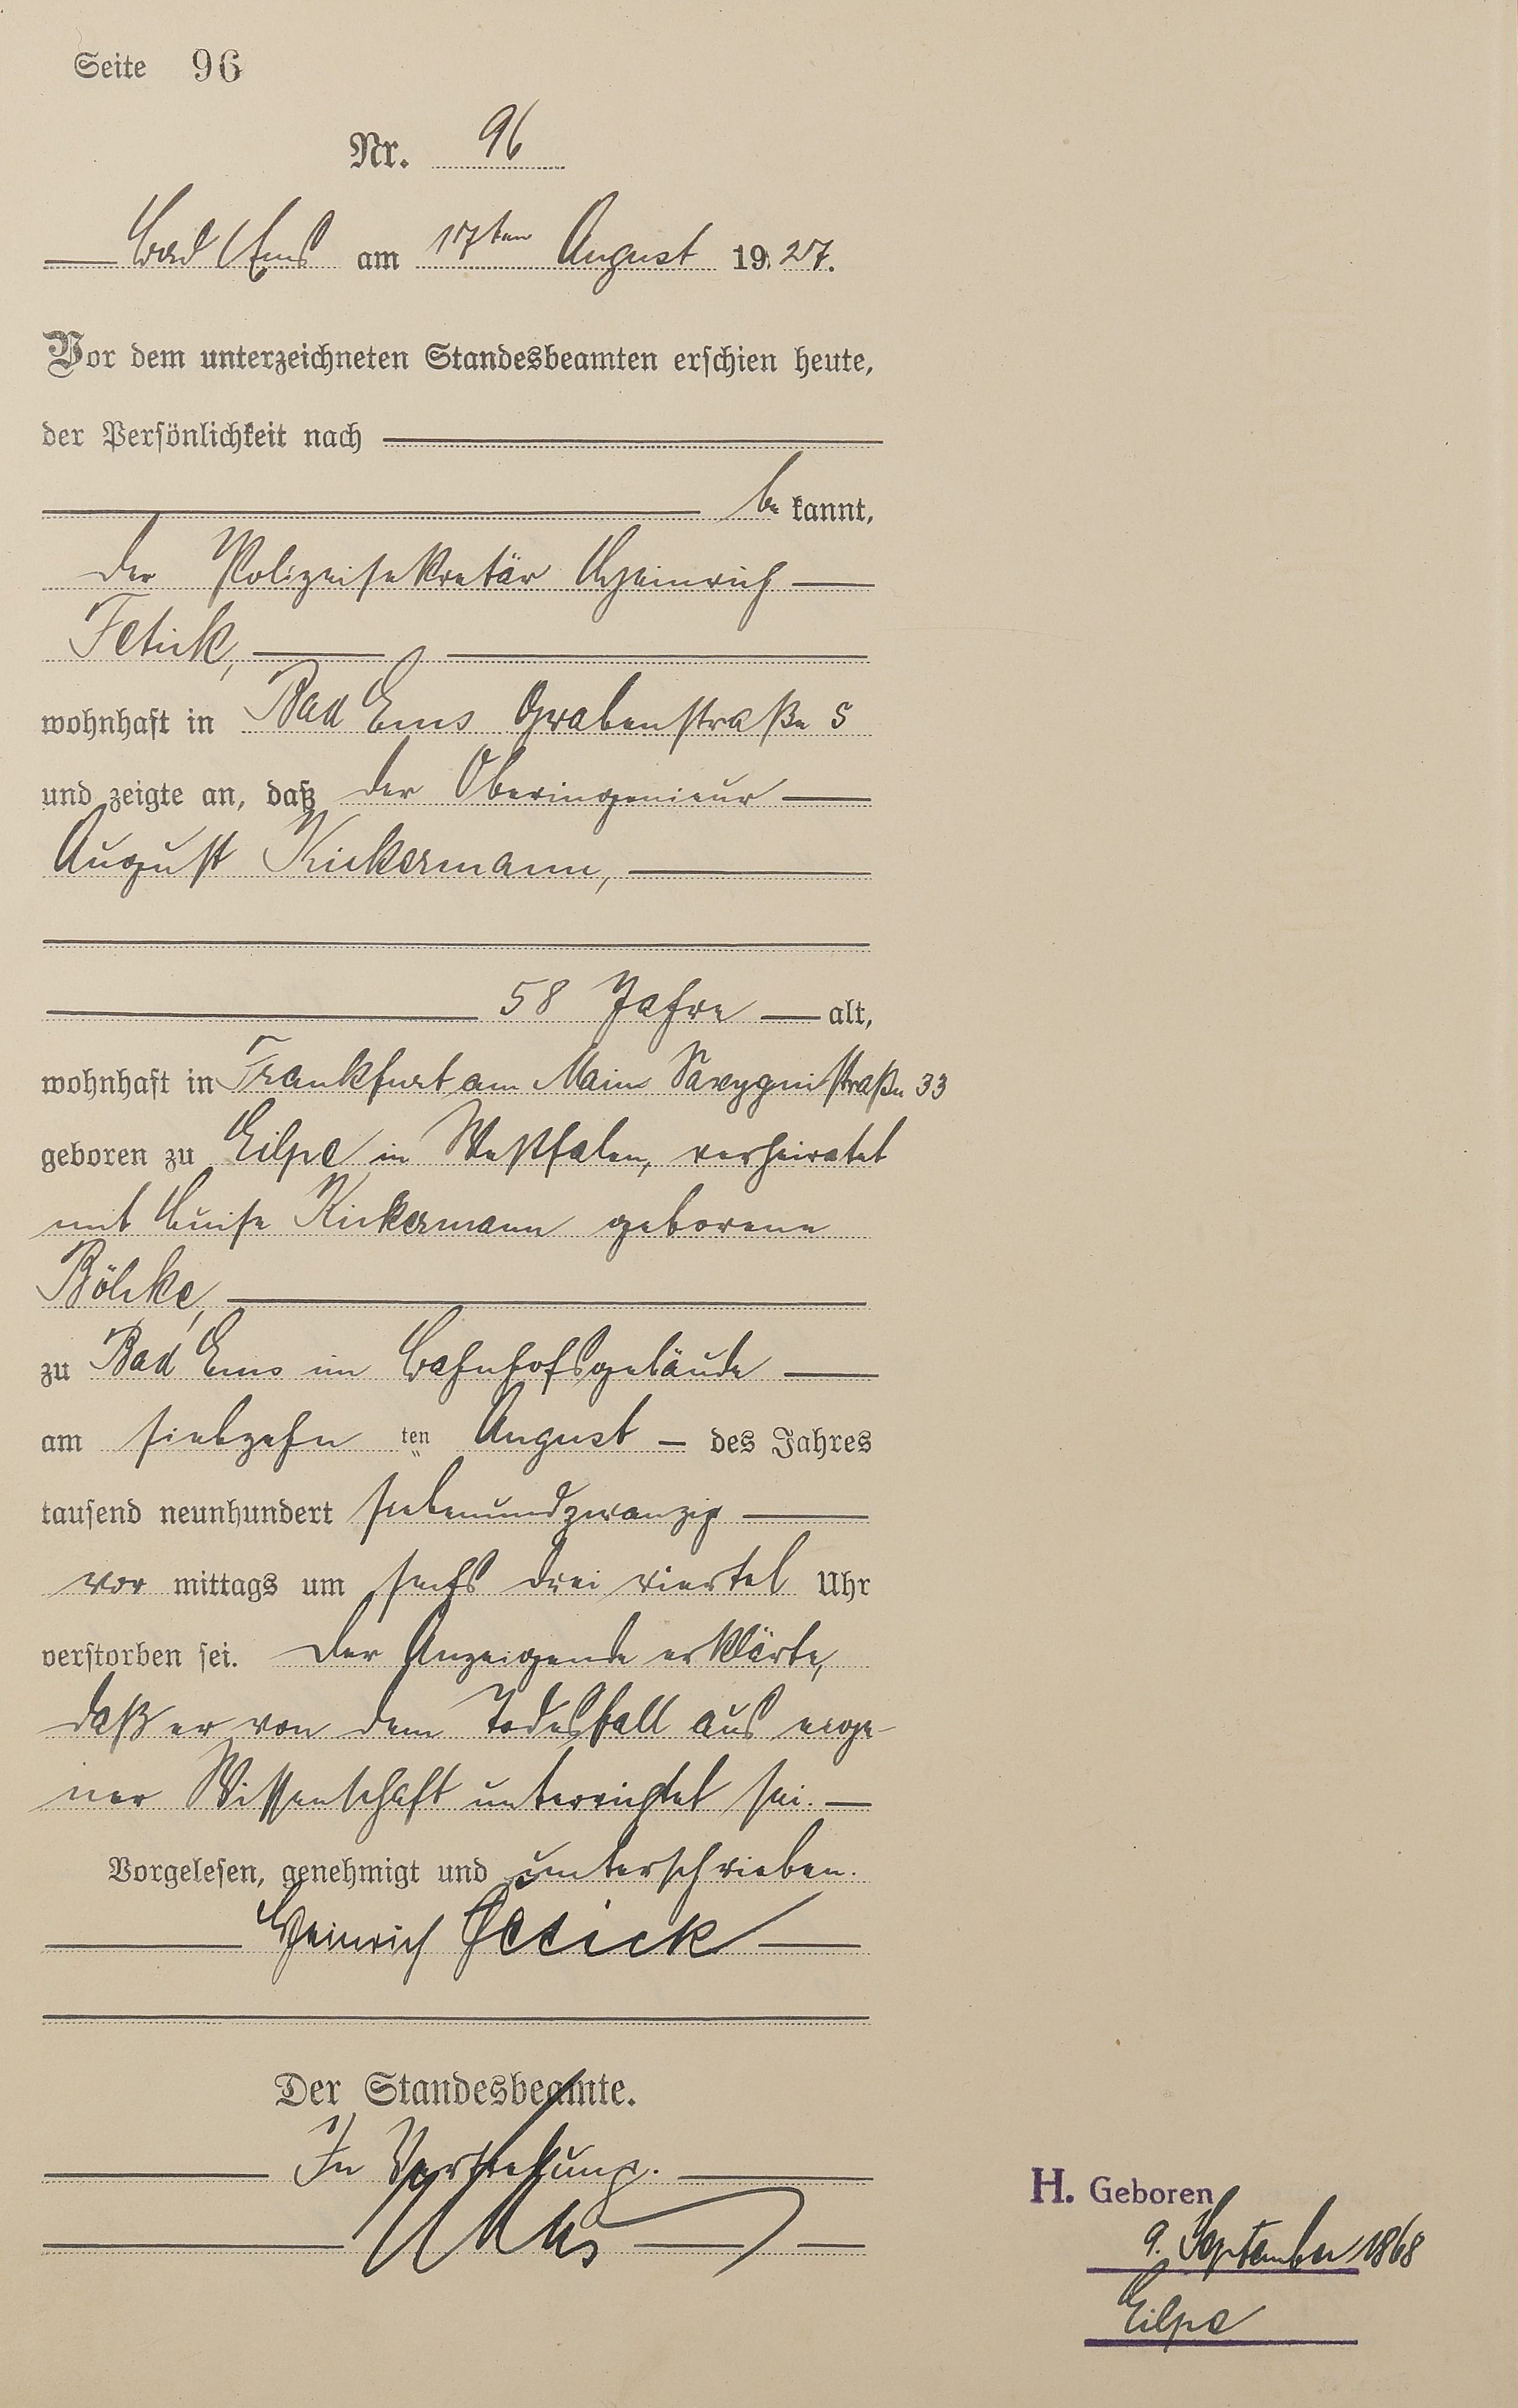 Seite 96
Nr. 96
Bad Ems am 17ten August 1927.
Vor dem unterzeichneten Standesbeamten erschien heute,
der Persönlichkeit nach
be kannt,
der Polizeisekretär Heinrich
Fetick,
wohnhaft in Bad Ems Grabenstraße 5
und zeigte an, daß der Oberingenieur
August Kickermann,
58 Jahre alt,
wohnhaft in Frankfurt am Main Savygnistraße 33
geboren zu Eilpe in Westfalen, verheiratet
mit Luise Kickermann geborene
zu Bad Ems im Bahnhofsgebäude
am siebzehn ten August des Jahres
tausend neunhundert siebenundzwanzig
vor mittags um sechs drei viertel Uhr
verstorben sei. Der Anzeigende erklärte,
daß er von dem Todesfall aus eige-
ner Wissenschaft unterrichtet sei.
Vorgelesen, genehmigt und unterschrieben.
Heinrich Fetick
Der Standesbeamte.
In Vertretung.
H. Geboren
9. September 1868
Eilpe